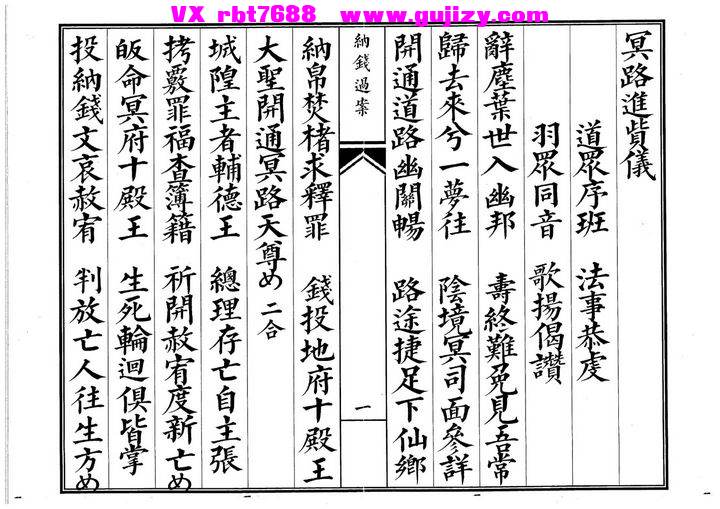 VX rbt7688 www.gujizy.com
冥路進貲儀
道眾序班 法事恭虔
羽眾同音 歌揚偈讚
辭塵葉世入幽邦 壽終難免見吾常
歸去來兮一夢往 陰境冥司面參詳
開通道路幽關暢 路途捷足下仙鄉
納錢過案
一
納帛焚楮求釋罪 錢投地府十殿王
大聖開通冥路天尊め 二合
城隍主者輔德王 總理存亡自主張
拷覈罪福查簿籍 祈開赦宥度新亡め
皈命冥府十殿王 生死輪迴俱皆掌
投納錢文哀赦宥 判放亡人往生方め